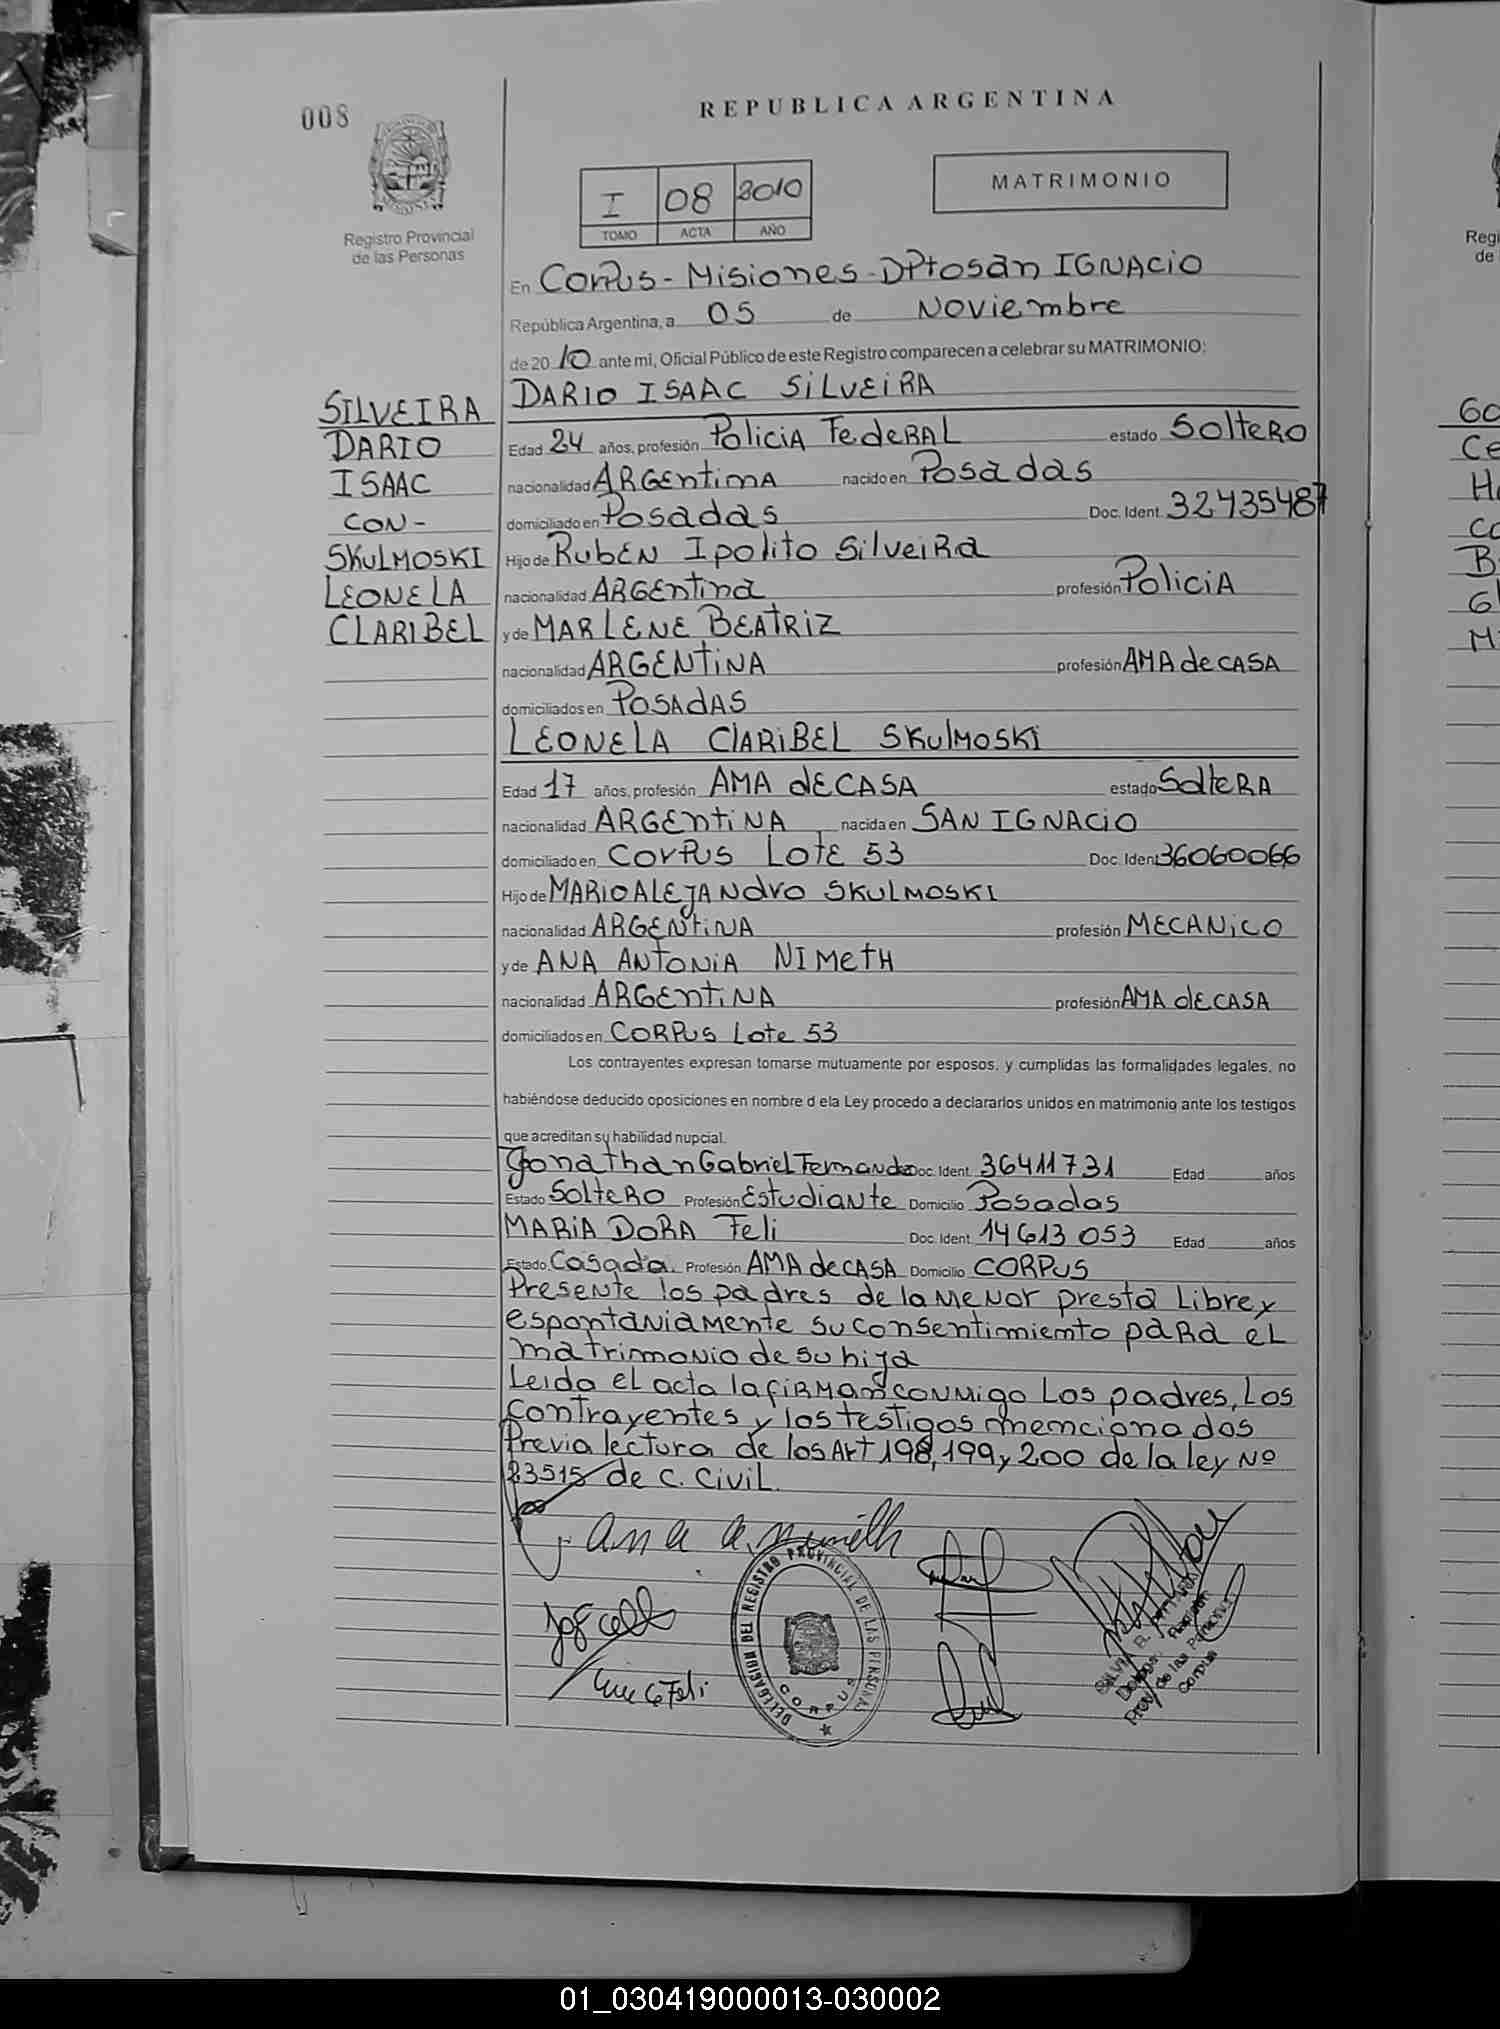 008
REPUBLICA ARGENTINA
I 08 2010
TOMO ACTA AÑO
MATRIMONIO
Registro Provincial
de las Personas
En Corpus - Misiones - DPto SAN IGNACIO
República Argentina, a 05 de Noviembre
de 2010 ante mi, Oficial Público de este Registro comparecen a celebrar su MATRIMONIO:
SILVEIRA
DARIO
ISAAC
CON-
SKULMOSKI
LEONELA
CLARIBEL
DARIO ISAAC SILVEIRA
Edad 24 años, profesión Policia Federal estado Soltero
nacionalidad Argentina nacido en Posadas
domiciliado en Posadas Doc. Ident. 32435487
Hijo de Ruben Ipolito Silveira
nacionalidad Argentina profesión Policia
y de MARLENE BEATRIZ
nacionalidad ARGENTINA profesión AMA de CASA
domiciliados en POSADAS
LEONELA CLARIBEL SKULMOSKI
Edad 17 años, profesión AMA de CASA estado Soltera
nacionalidad ARGENTINA nacida en SAN IGNACIO
domiciliado en CORPUS Lote 53 Doc. Ident. 36060066
Hijo de MARIO ALEJANDRO SKULMOSKI
nacionalidad ARGENTINA profesión MECANICO
y de ANA ANTONIA NIMETH
nacionalidad ARGENTINA profesión AMA de CASA
domiciliados en CORPUS Lote 53
Los contrayentes expresan tomarse mutuamente por esposos, y cumplidas las formalidades legales, no
habiéndose deducido oposiciones en nombre d ela Ley procedo a declararlos unidos en matrimonio ante los testigos
que acreditan su habilidad nupcial.
Jonathan Gabriel Fernandez Doc. Ident. 36411731 Edad años
Estado Soltero Profesión Estudiante Domicilio Posadas
MARIA DORA Feli Doc. Ident. 14613053 Edad años
Estado Casada. Profesión AMA de CASA Domicilio CORPUS
Presente los padres de la menor presta Libre y
espontaniamente su consentimiento para el
matrimonio de su hija
Leido el acta la firman conmigo Los padres, Los
contrayentes y los testigos mencionados
Previa lectura de los Art 198, 199 y 200 de la ley Nº
23515 de C. Civil.
Ana A. Nimeth
DELEGACION DEL REGISTRO PROVINCIAL DE LAS PERSONAS
CORPUS
Prov. de las Personas
Corpus
Regi
de
Go
Ce
Co
B
Gl
M
01_030419000013-030002